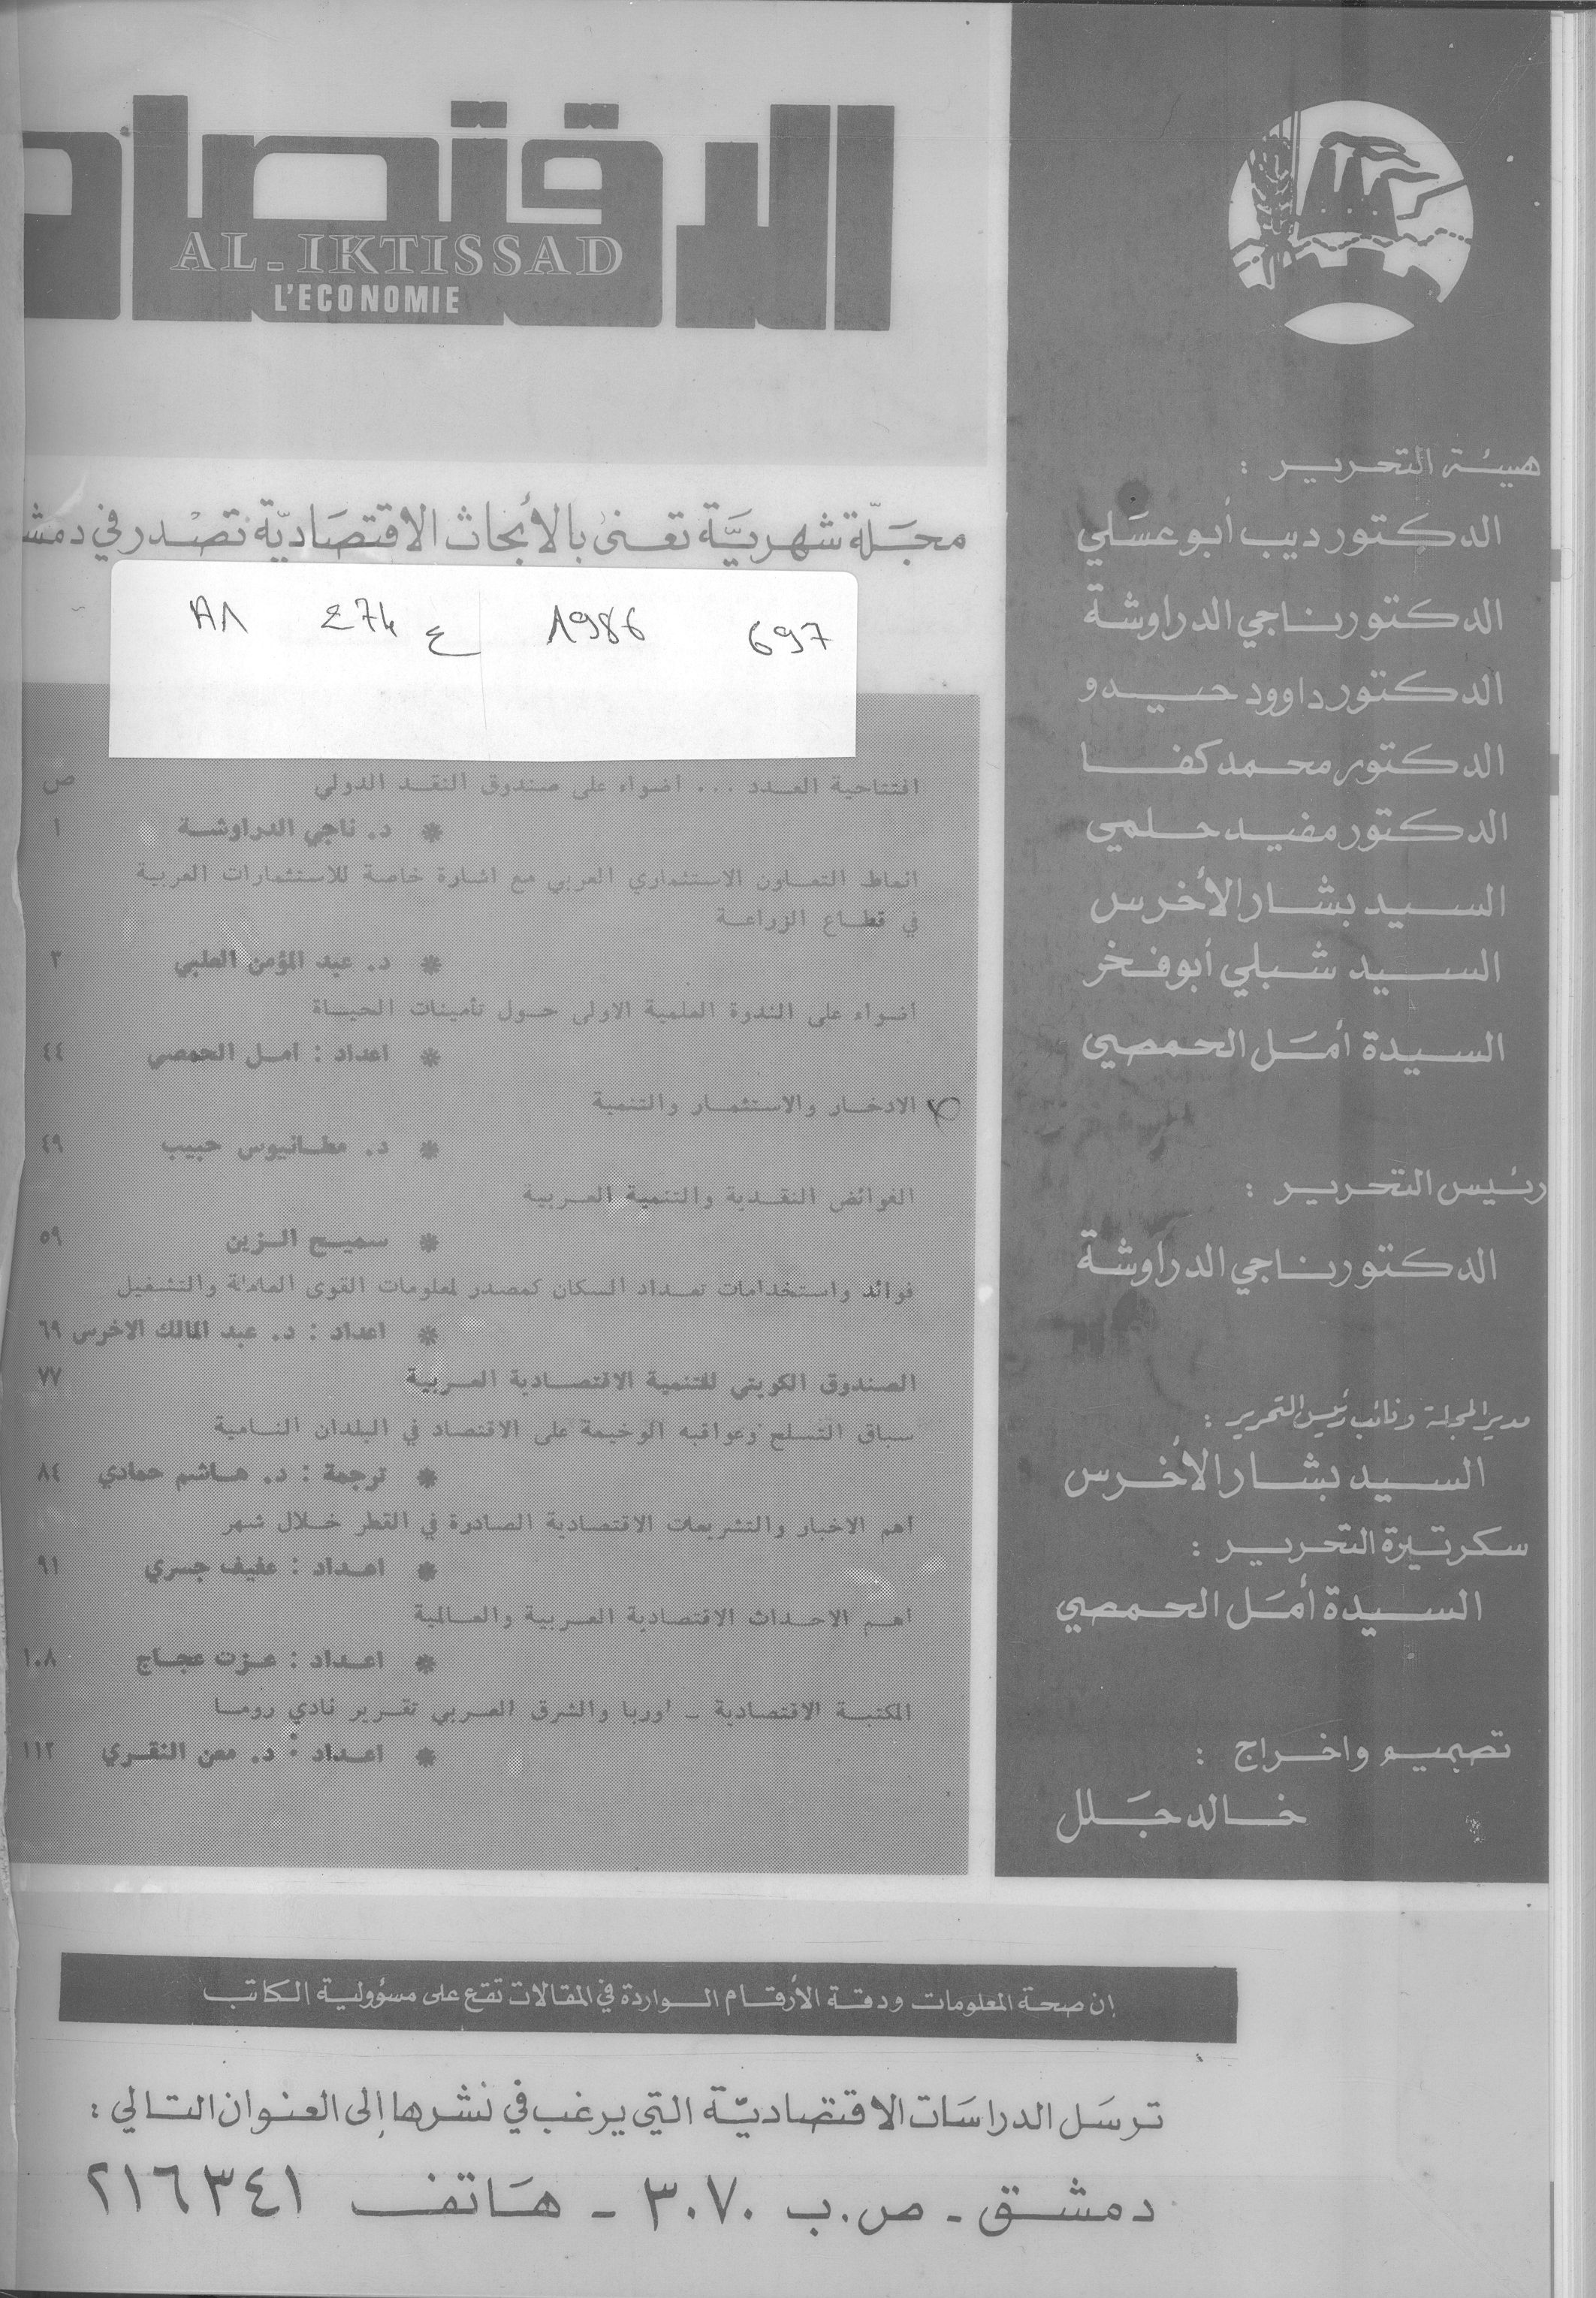 الاقتصاد
AL-IKTISSAD
L'ECONOMIE
مجلة شهرية تعنى بالأبحاث الاقتصادية تصدر في دمشق
697 1986 ع 274 AA
ص
افتتاحية العدد ... اضواء على صندوق النقد الدولي
* د. ناجي الدراوشة ١
انماط التعاون الاستثماري العربي مع اشارة خاصة للاستثمارات العربية
في قطاع الزراعة
* د. عبد المؤمن العلبي ٣
اضواء على الندوة العلمية الاولى حول تأمينات الحياة
* اعداد : امل الحمصي ٤٤
الادخار والاستثمار والتنمية
* د. مطانيوس حبيب ٤٩
الفوائض النقدية والتنمية العربية
* سميح الزين ٥٩
فوائد واستخدامات تعداد السكان كمصدر لمعلومات القوى العاملة والتشغيل
* اعداد : د. عبد المالك الاخرس ٦٩
الصندوق الكويتي للتنمية الاقتصادية العربية ٧٧
سباق التسلح وعواقبه الوخيمة على الاقتصاد في البلدان النامية
* ترجمة : د. هاشم حمادي ٨٤
أهم الاخبار والتشريعات الاقتصادية الصادرة في القطر خلال شهر
* اعداد : عفيف جسري ٩١
اهم الاحداث الاقتصادية العربية والعالمية
* اعداد : عزت عجاج ١٠٨
المكتبة الاقتصادية - اوربا والشرق العربي تقرير نادي روما
* اعداد : د. معن النقري ١١٢
هيئة التحرير :
الدكتور ديب أبو عسلي
الدكتور ناجي الدراوشة
الدكتور داوود حيدو
الدكتور محمد كفا
الدكتور مفيد حلمي
السيد بشار الأخرس
السيد شبلي أبو فخر
السيدة أمل الحمصي
رئيس التحرير :
الدكتور ناجي الدراوشة
مدير المجلة ونائب رئيس التحرير :
السيد بشار الأخرس
سكرتيرة التحرير :
السيدة أمل الحمصي
تصميم واخراج :
خالد جلل
إن صحة المعلومات ودقة الأرقام الواردة في المقالات تقع على مسؤولية الكاتب
ترسل الدراسات الاقتصادية التي يرغب في نشرها إلى العنوان التالي :
دمشق - ص.ب ٣٠٧٠ - هاتف ٢١٦٣٤١